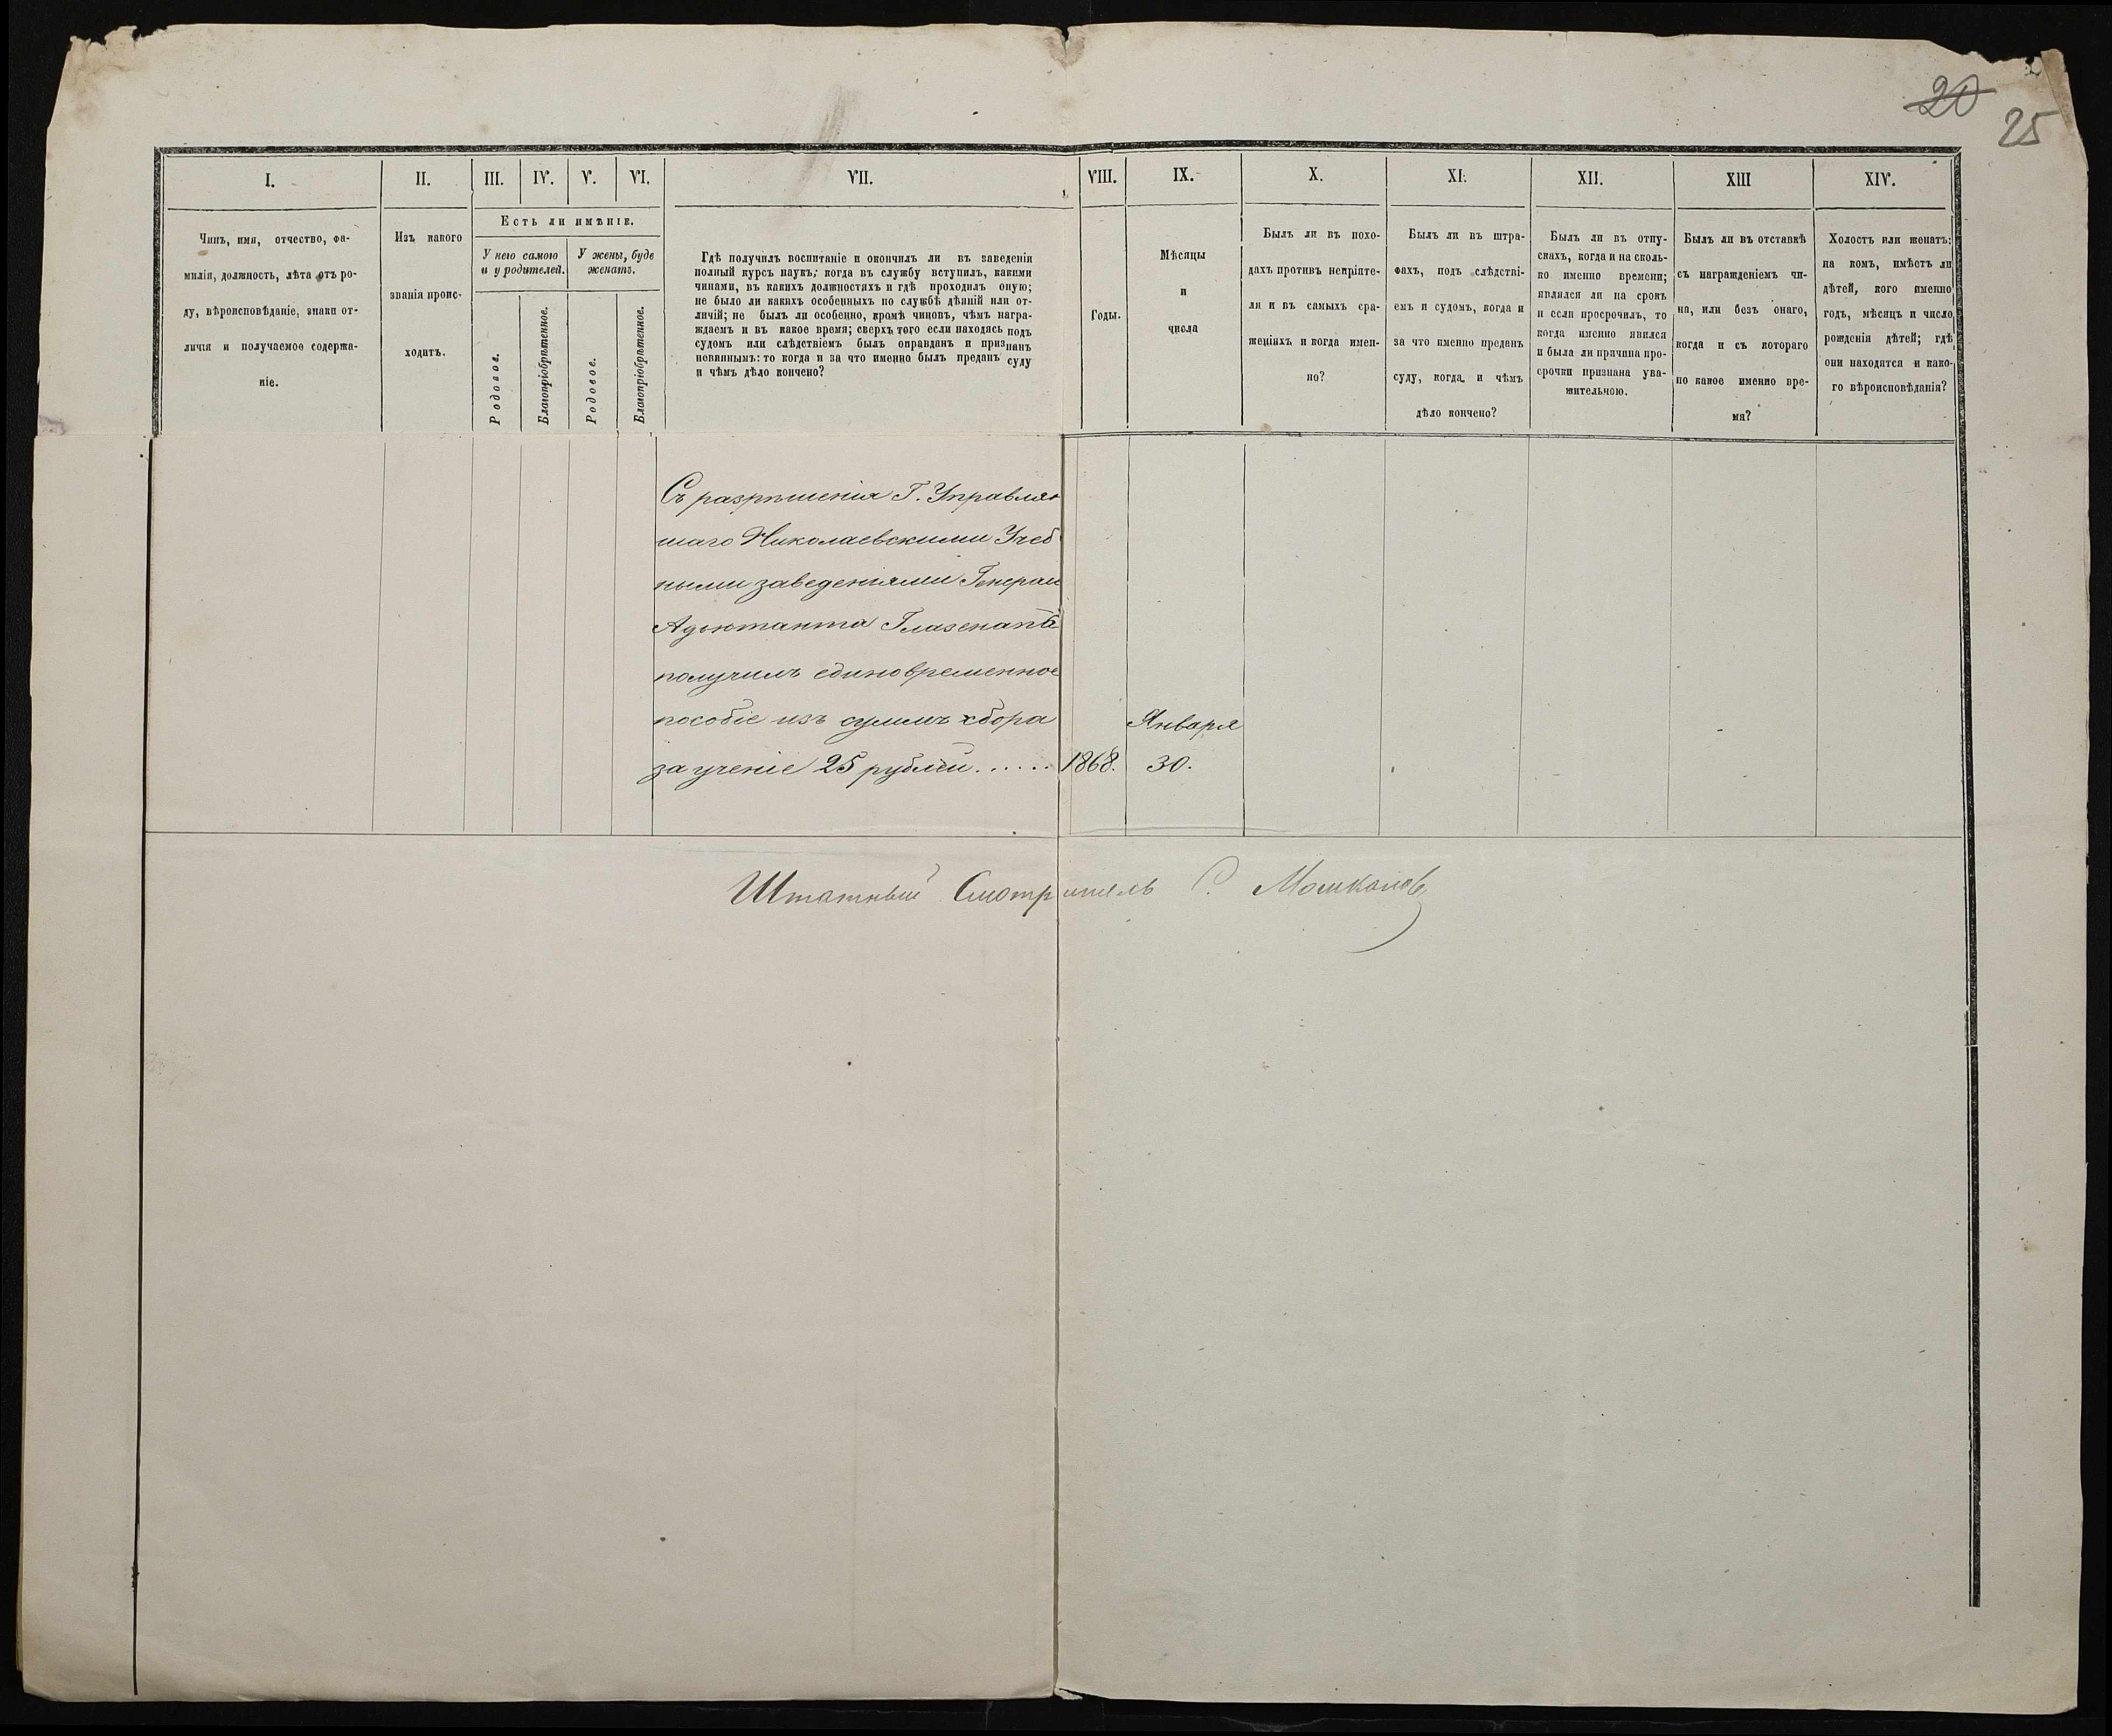 20
25
I.
Чинъ, имя, отчество, фа-
милія, должность, лѣта отъ ро-
ду, вѣроисповѣданіе, знаки от-
личія и получаемое содержа-
ніе.
II.
Изъ какого
званія проис-
ходитъ.
III. IV. V. VI.
Есть ли имѣніе.
У него самого
и у родителей.
У жены, буде
женатъ.
Родовое.
Благопріобрѣтенное.
Родовое.
Благопріобрѣтенное.
VII.
Гдѣ получилъ воспитаніе и окончилъ ли въ заведеніи
полный курсъ наукъ; когда въ службу вступилъ, какими
чинами, въ какихъ должностяхъ и гдѣ проходилъ оную;
не было ли какихъ особенныхъ по службѣ дѣяній или от-
личій; не былъ ли особенно, кромѣ чиновъ, чѣмъ награ-
ждаемъ и въ какое время; сверхъ того если находясь подъ
судомъ или слѣдствіемъ былъ оправданъ и признанъ
невиннымъ: то когда и за что именно былъ преданъ суду
и чѣмъ дѣло кончено?
VIII.
Годы.
IX.
Мѣсяцы
и
числа
X.
Былъ ли въ похо-
дахъ противъ непріяте-
ля и въ самыхъ сра-
женіяхъ и когда имен-
но?
XI.
Былъ ли въ штра-
фахъ, подъ слѣдстві-
емъ и судомъ, когда и
за что именно преданъ
суду, когда и чѣмъ
дѣло кончено?
XII.
Былъ ли въ отпу-
скахъ, когда и на сколь-
ко именно времени;
явился ли на срокъ
и если просрочилъ, то
когда именно явился
и была ли причина про-
срочки признана ува-
жительною.
XIII
Былъ ли въ отставкѣ
съ награжденіемъ чи-
на, или безъ онаго,
когда и съ котораго
по какое именно вре-
мя?
XIV.
Холостъ или женатъ:
на комъ, имѣетъ ли
дѣтей, кого именно
годъ, мѣсяцъ и число
рожденія дѣтей; гдѣ
они находятся и како-
го вѣроисповѣданія?
Съ разрѣшенія Г. Управляю
щаго Николаевскими Учеб
ными заведеніями Генерал
Адъютанта Глазенапа
получилъ единовременное
пособіе изъ суммъ сбора
за ученіе 25 рублей ...... 1868. Января 30.
Штатный Смотритель С. Мошканов